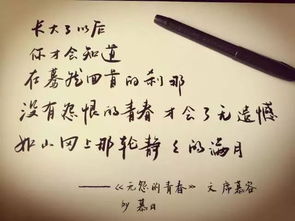 长大了以后
你才会知道
在蓦然回首的刹那
没有怨恨的青春才会了无遗憾
如山冈上那轮静静的满月
——《无怨的青春》 文 席慕容
by 慕日